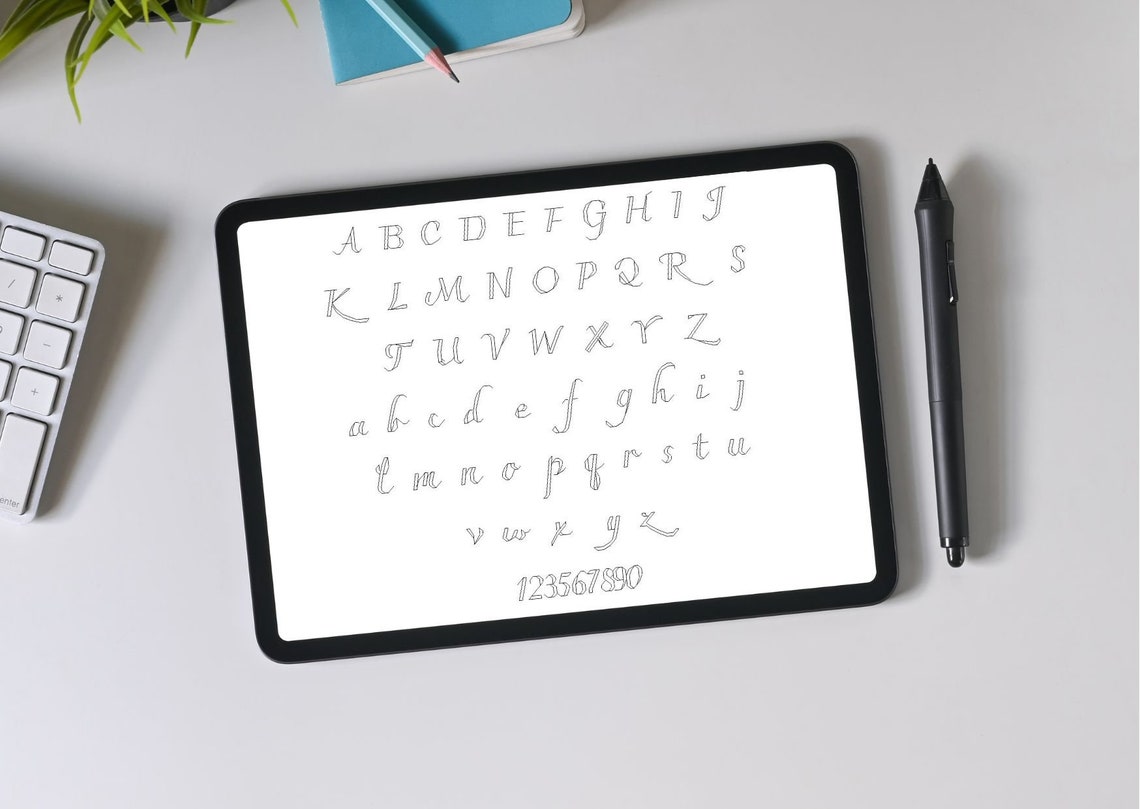 A B C D E F G H I J
K L M N O P Q R S
T U V W X Y Z
a b c d e f g h i j
l m n o p q r s t u
v w x y z
123567890
/
*
9
-
+
enter